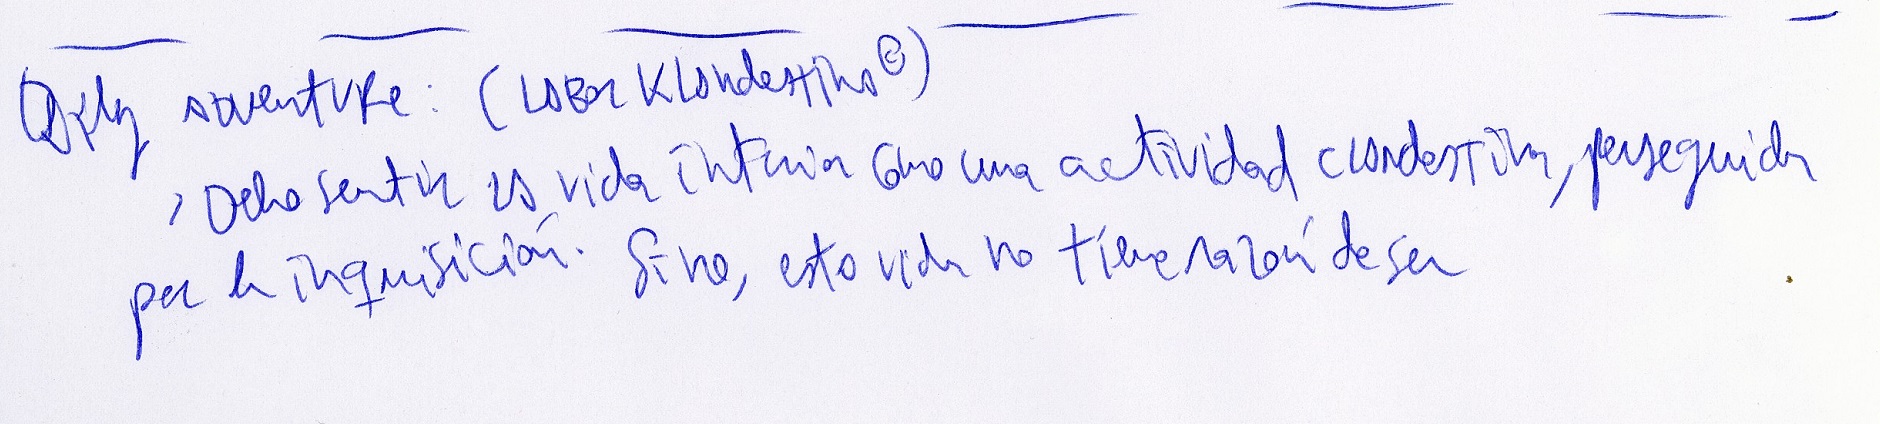 Daily adventure: (LaBor Klandestina ©)
, Debo sentir la vida interior como una actividad clandestina, perseguida
por la inquisición. Si no, esta vida no tiene razón de ser